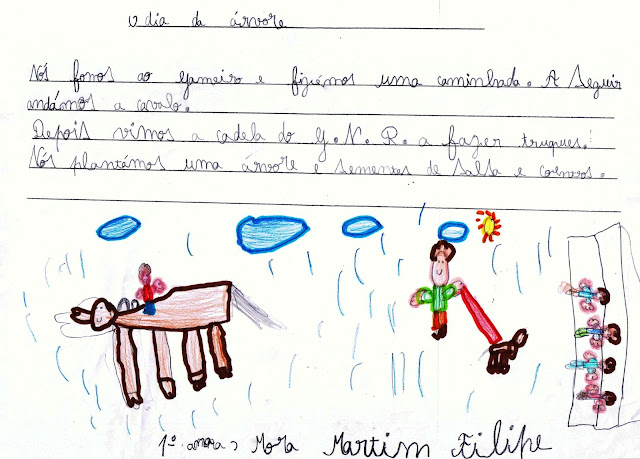 o dia da árvore
Nós fomos ao Gameiro e fiziémos uma caminhada. A seguir
andámos a cavalo.
Depois vimos a cadela do G. N. R. a fazer truques.
Nós plantámos uma árvore e sementes de salsa e coentros.
1º Mora Martim Filipe